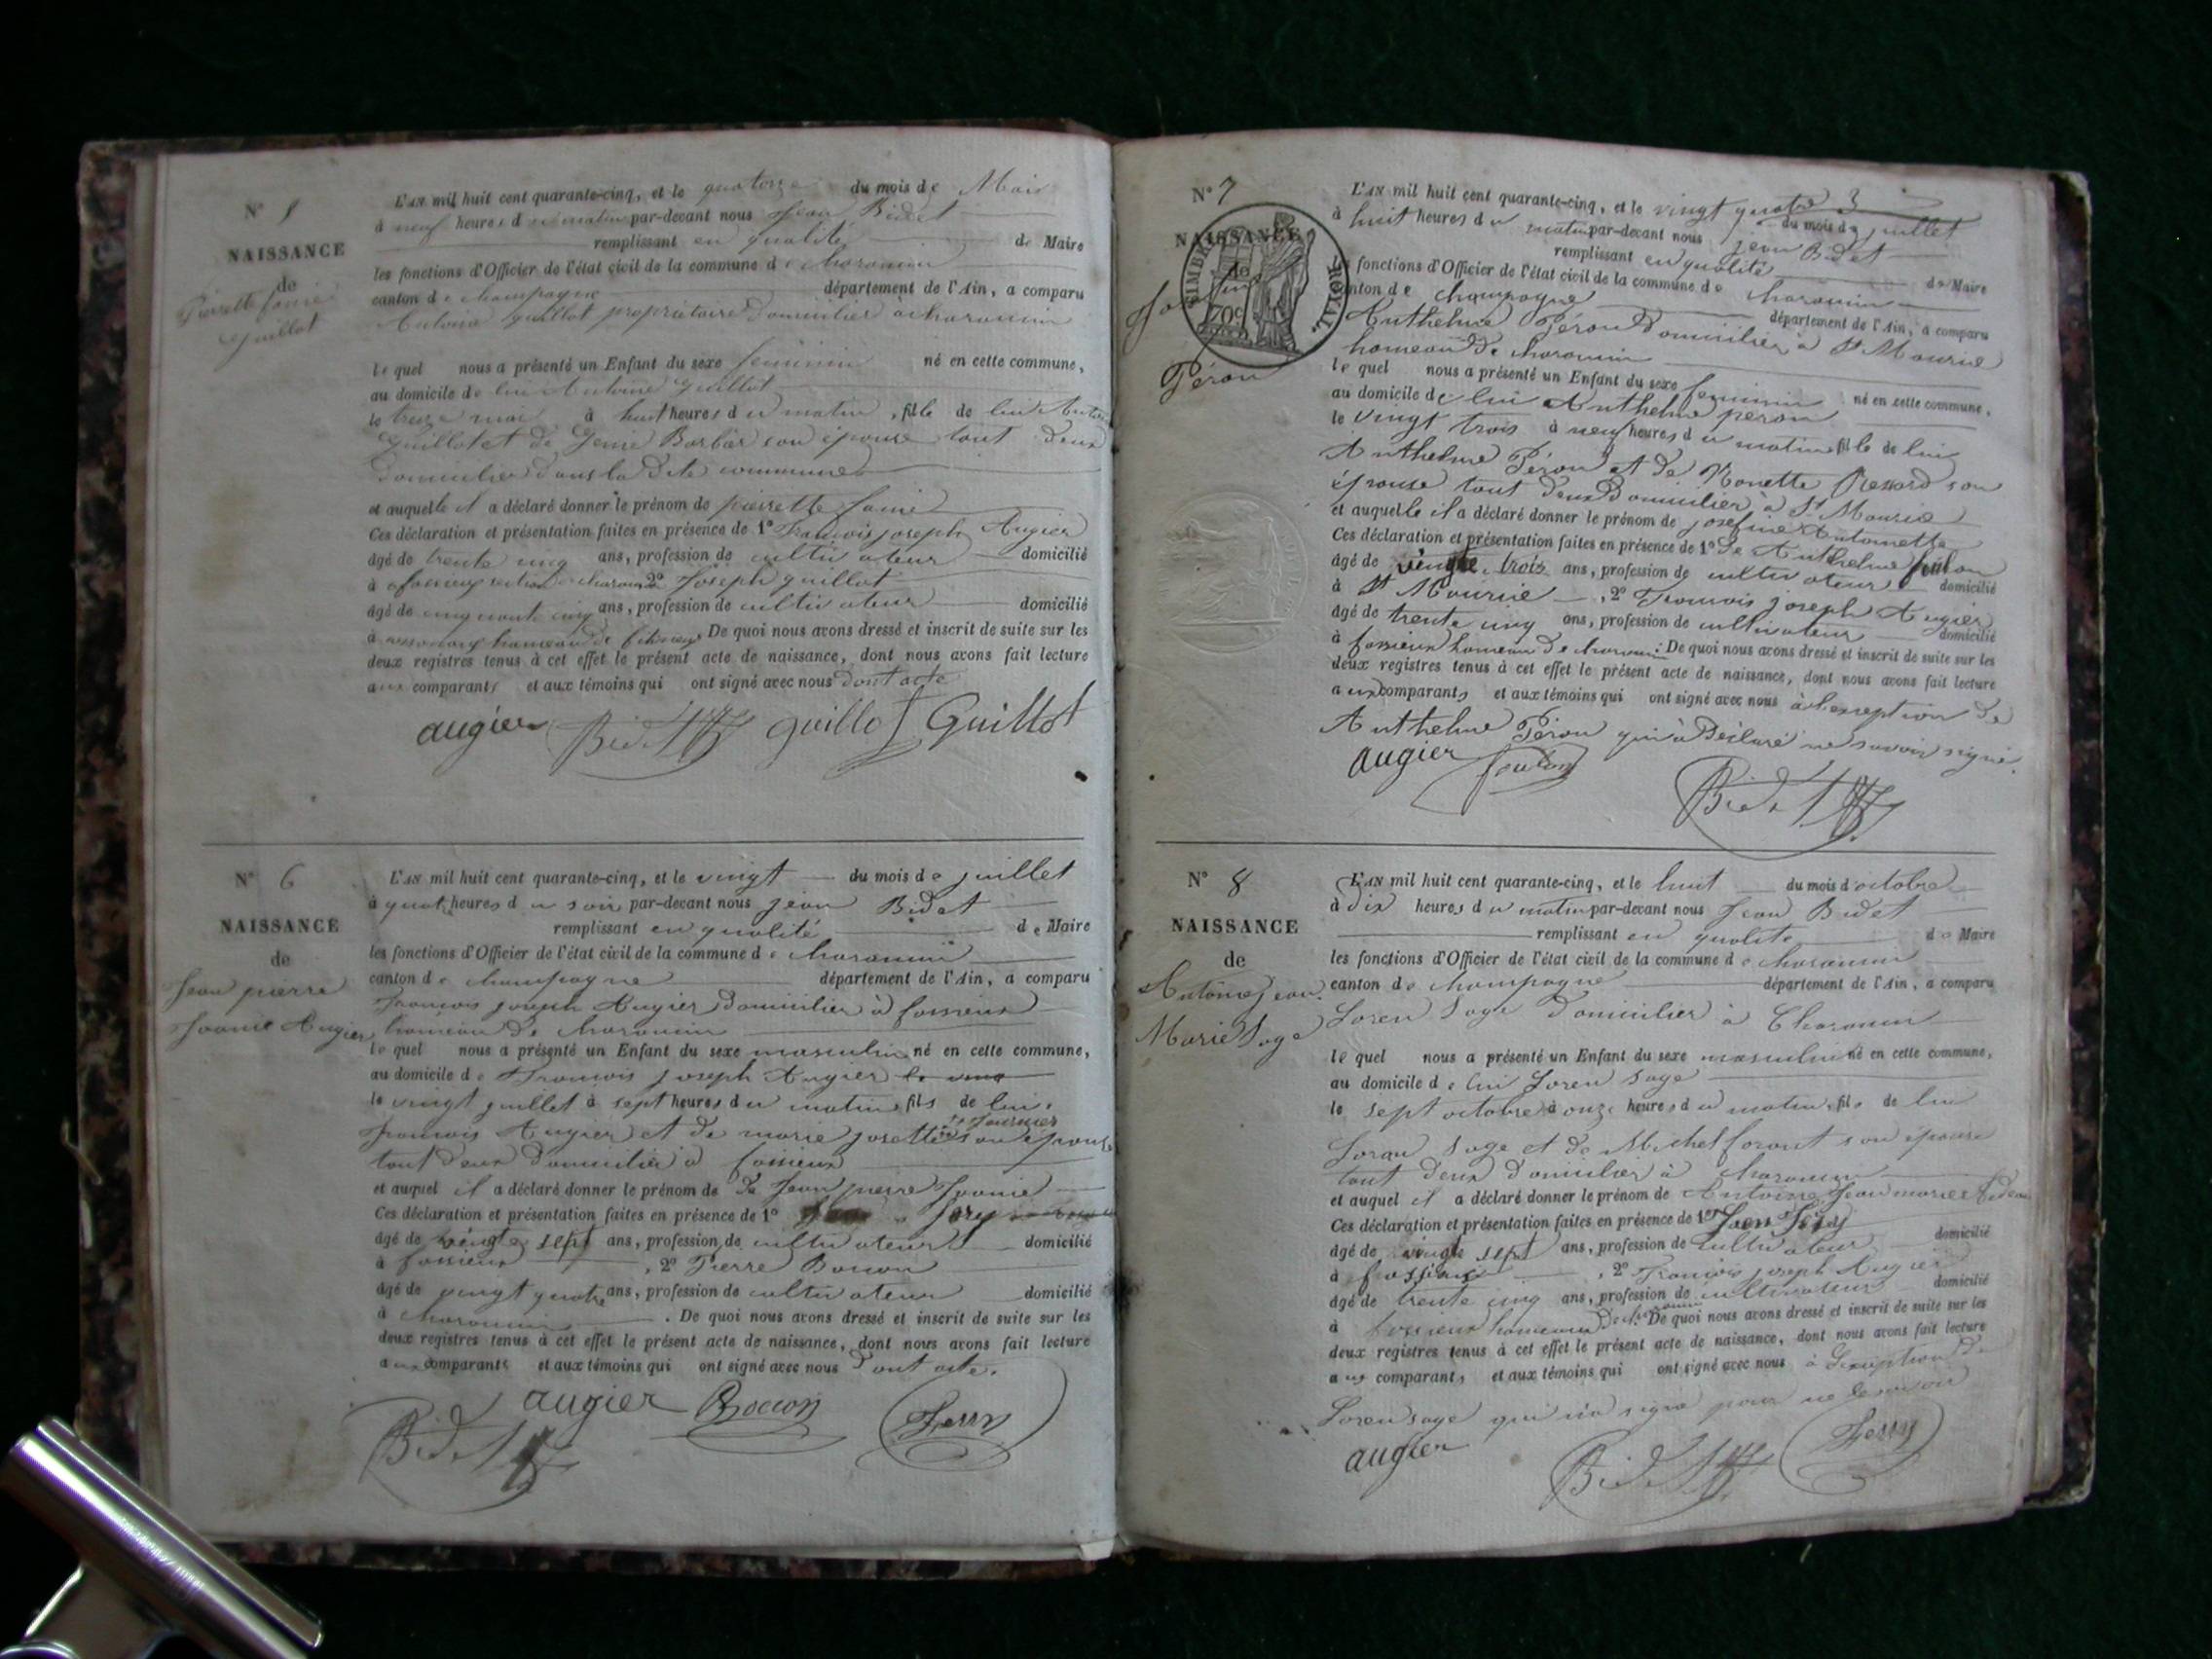 N° 5
NAISSANCE
de
Pierrette
Guillot
L'AN mil huit cent quarante-cinq, et le quatorze du mois de Mai
à neuf heures du matin par-devant nous Jean Bidet
remplissant en qualité de Maire
les fonctions d'Officier de l'état civil de la commune de
canton de Champagne département de l'Ain, a comparu
Antoine guillot propriétaire domicilier à
lequel nous a présenté un Enfant du sexe féminin né en cette commune,
au domicile de lui Antoine guillot
le treize mai à huit heures du matin, fille de lui Antoine
guillot et de Barbier son épouse tout deux
domicilier dans la dite commune
et auquelle il a déclaré donner le prénom de pierrette
Ces déclaration et présentation faites en présence de 1° François joseph Augier
âgé de trente cinq ans, profession de cultivateur domicilié
à 2° Joseph guillot
âgé de cinquante cinq ans, profession de cultivateur domicilié
à hameau de De quoi nous avons dressé et inscrit de suite sur les
deux registres tenus à cet effet le présent acte de naissance, dont nous avons fait lecture
aux comparants et aux témoins qui ont signé avec nous dont acte
augier Bidet guillot Guillot
N° 6
NAISSANCE
de
Jean pierre
Augier
L'AN mil huit cent quarante-cinq, et le vingt du mois de juillet
à quatre heures du soir par-devant nous jean Bidet
remplissant en qualité de Maire
les fonctions d'Officier de l'état civil de la commune de
canton de Champagne département de l'Ain, a comparu
François joseph Augier domicilier à fossieux
hameau de
lequel nous a présenté un Enfant du sexe masculin né en cette commune,
au domicile de François joseph Augier
le vingt juillet à sept heures du matin, fils de lui
françois Augier et de marie josette fournier son épouse
tout deux domicilié à fossieux
et auquel il a déclaré donner le prénom de Jean pierre
Ces déclaration et présentation faites en présence de 1°
âgé de vingt sept ans, profession de cultivateur domicilié
à fossieux, 2° Pierre Bocon
âgé de vingt quatre ans, profession de cultivateur domicilié
à . De quoi nous avons dressé et inscrit de suite sur les
deux registres tenus à cet effet le présent acte de naissance, dont nous avons fait lecture
aux comparants et aux témoins qui ont signé avec nous dont acte.
augier Bocon
Bidet
N° 7
NAISSANCE
de
TIMBRE ROYAL
70c
Péron
L'AN mil huit cent quarante-cinq, et le vingt quatre du mois de juillet
à huit heures du matin par-devant nous jean Bidet
remplissant en qualité de Maire
les fonctions d'Officier de l'état civil de la commune de
canton de champagne département de l'Ain, a comparu
Anthelme Péron domicilier à St Mourice
hameau de
lequel nous a présenté un Enfant du sexe feminin né en cette commune,
au domicile de lui Anthelme peron
le vingt trois à neuf heures du matin fille de lui
Anthelme Péron et de son
épouse tout deux domicilier à St Mourice
et auquelle il a déclaré donner le prénom de josefine Antoinette
Ces déclaration et présentation faites en présence de 1° Anthelme
âgé de vingt trois ans, profession de cultivateur domicilié
à St Mourice, 2° François joseph Augier
âgé de trente cinq ans, profession de cultivateur domicilié
à fossieux hameau de De quoi nous avons dressé et inscrit de suite sur les
deux registres tenus à cet effet le présent acte de naissance, dont nous avons fait lecture
aux comparants et aux témoins qui ont signé avec nous à l'exception de
Anthelme Péron qui à Déclaré ne savoir signé.
augier
Bidet
N° 8
NAISSANCE
de
Antoine jean
Marie Soge
L'AN mil huit cent quarante-cinq, et le huit du mois d'octobre
à Dix heures du matin par-devant nous Jean Bidet
remplissant en qualité de Maire
les fonctions d'Officier de l'état civil de la commune de
canton de Champagne département de l'Ain, a comparu
Loren Soge Domicilier à
lequel nous a présenté un Enfant du sexe masculin né en cette commune,
au domicile de lui Loren Soge
le sept octobre à onze heures du matin, fils de lui
Loran Soge et de Michel son épouse
tout deux domicilier à
et auquel il a déclaré donner le prénom de Antoine Jean marie
Ces déclaration et présentation faites en présence de 1°
âgé de vingt sept ans, profession de cultivateur domicilié
à fossieux, 2° François joseph Augier
âgé de trente cinq ans, profession de cultivateur domicilié
à fossieux hameau De quoi nous avons dressé et inscrit de suite sur les
deux registres tenus à cet effet le présent acte de naissance, dont nous avons fait lecture
aux comparants et aux témoins qui ont signé avec nous à de
Loren soge qui n'a signé pour ne le savoir
augier Bidet